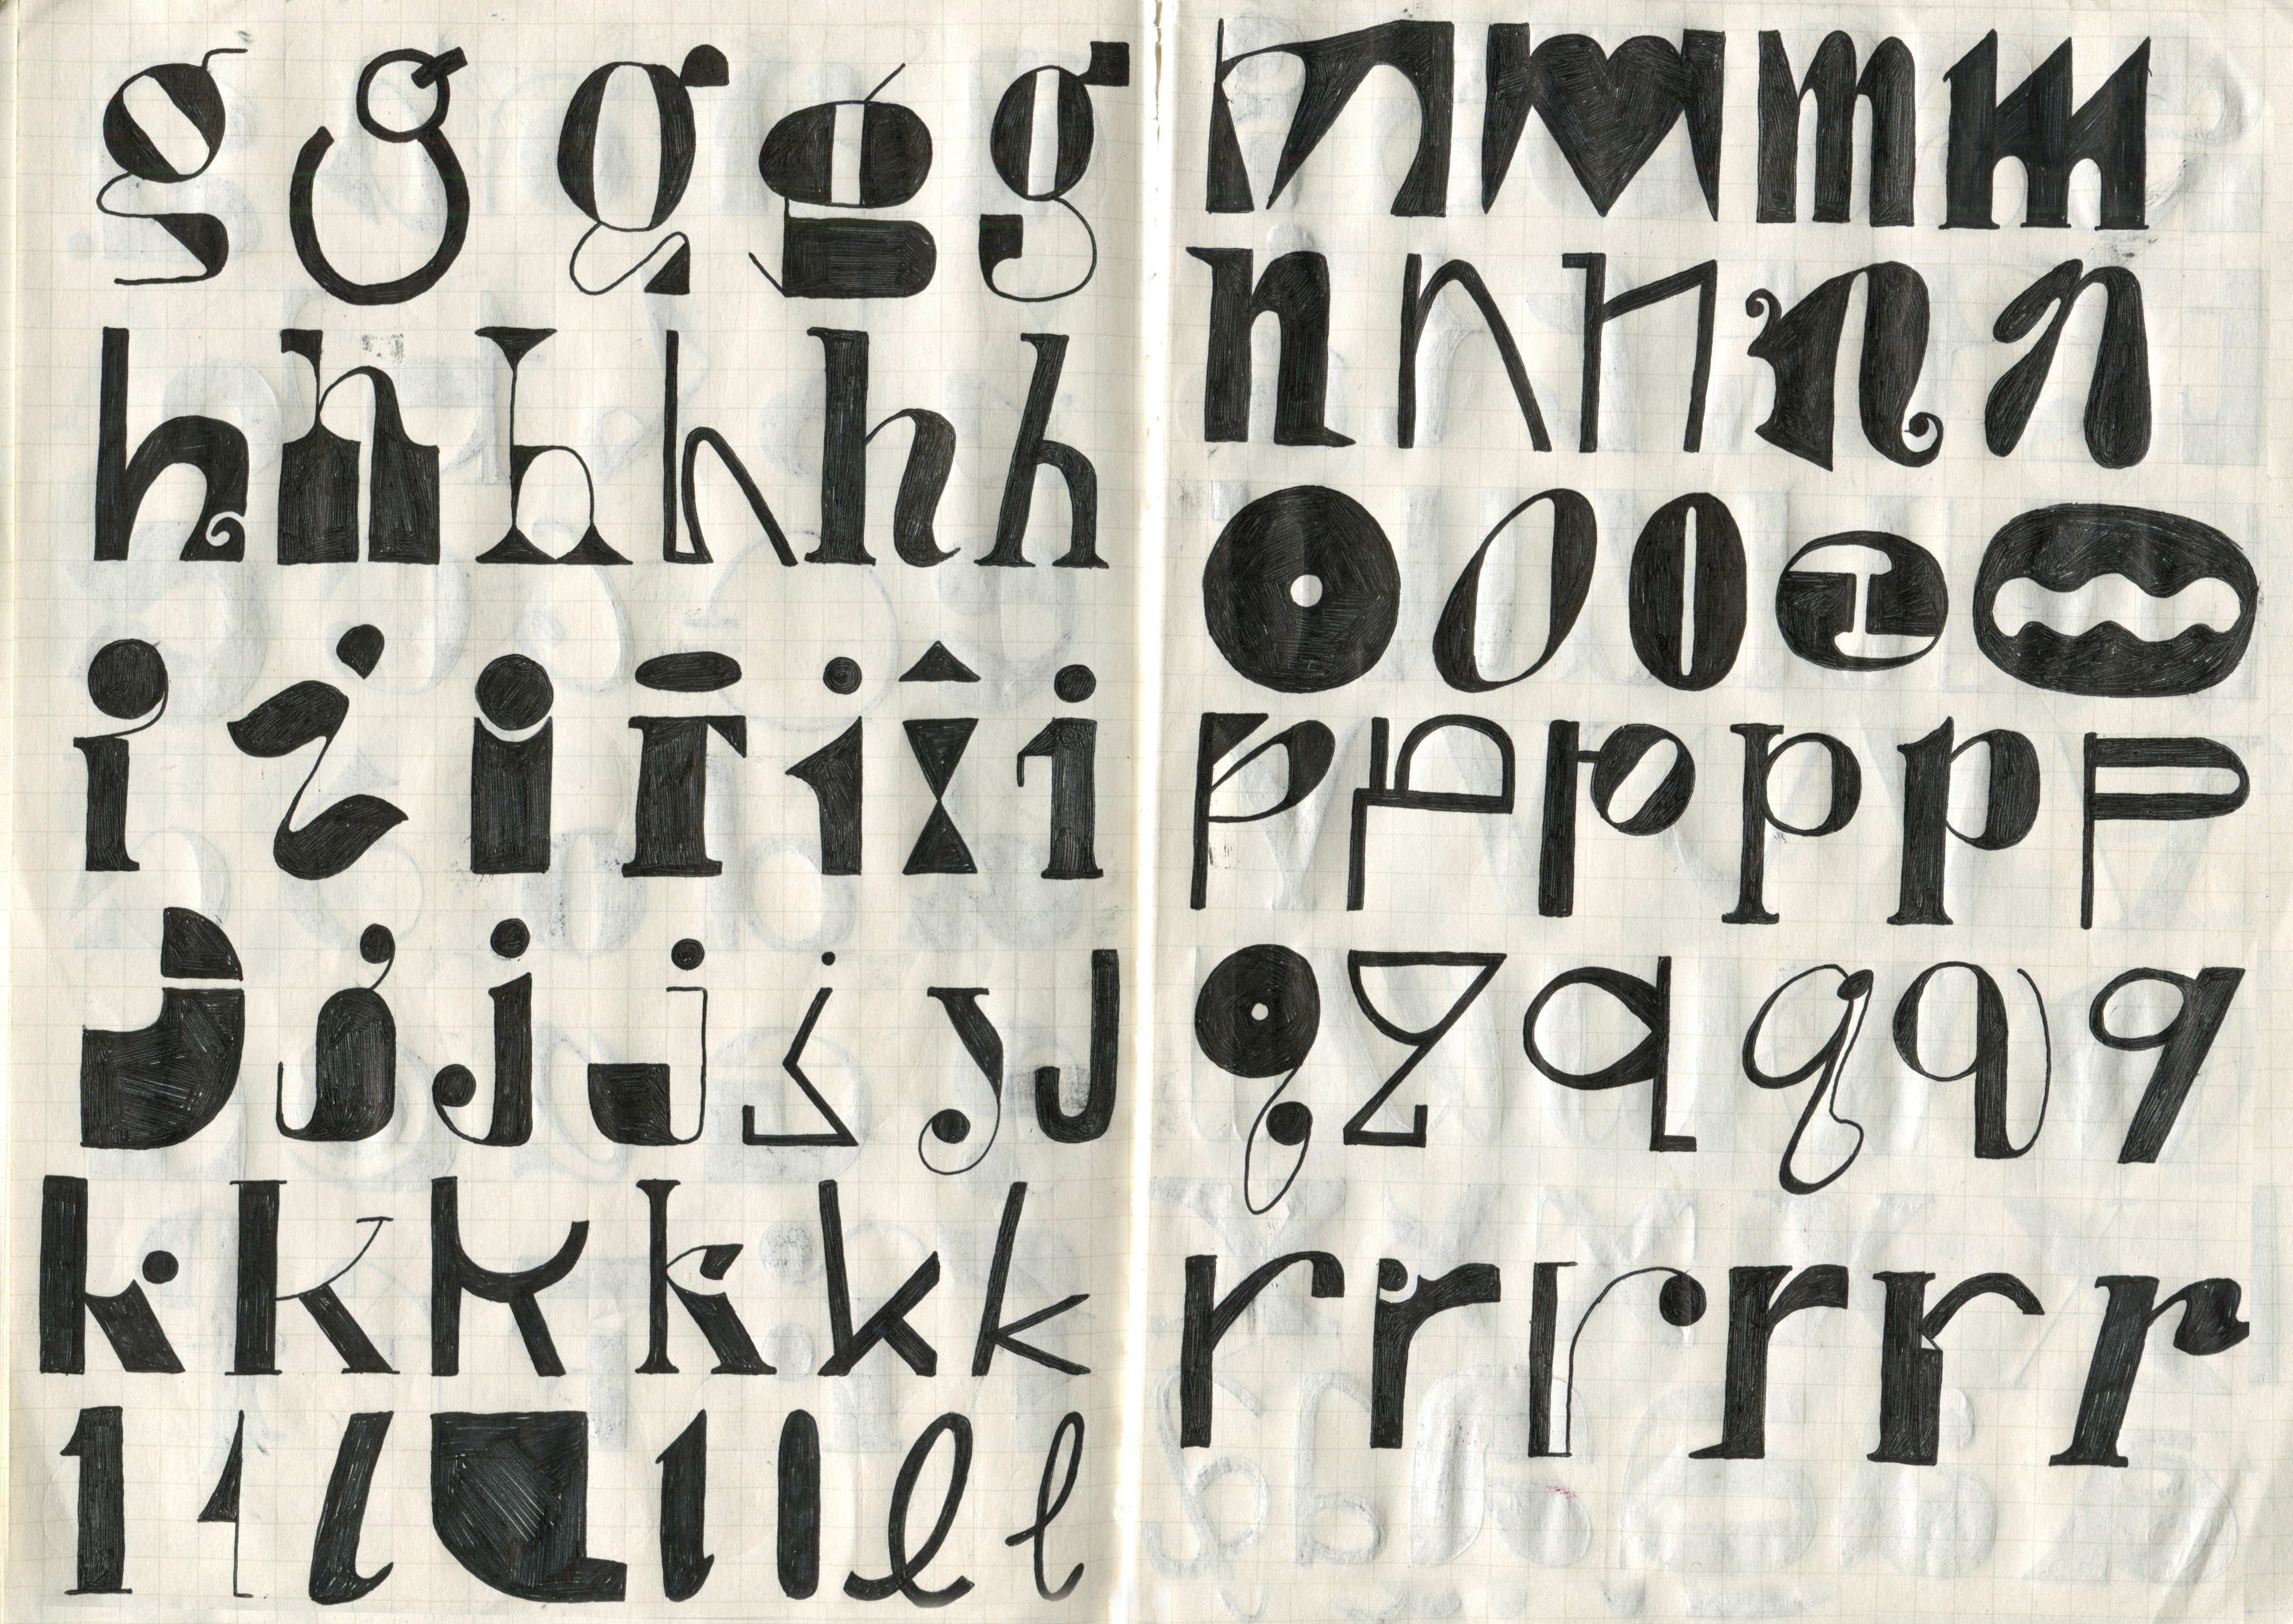 ggggg
hhhhhh
iiiiiii
jjjjjjj
kkkkkk
llllllll
mmmm
nnnnn
ooooo
pppppp
qqqqqq
rrrrrr